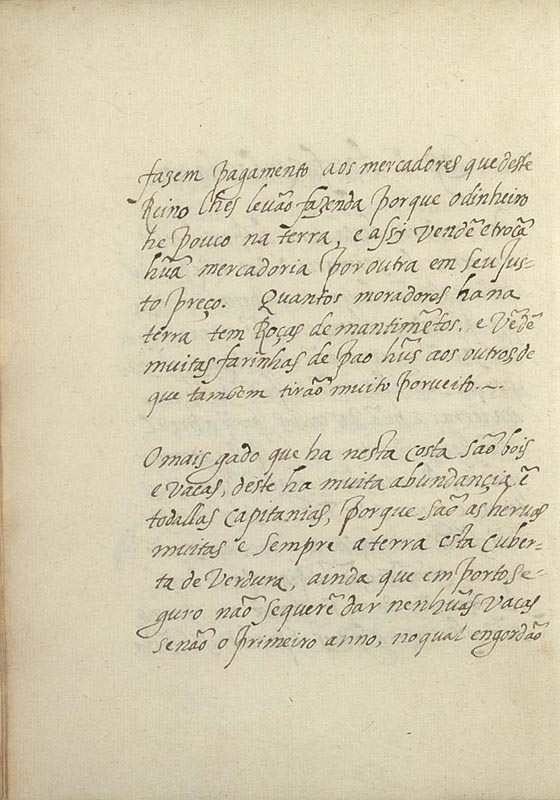 fazem pagamento aos mercadores que deste
Reino lhes levão fazenda porque o dinheiro
he pouco na terra, e assy vendẽ e trocã
hũa mercadoria por outra em seu jus-
to preço. Quantos moradores ha na
terra tem Roças de mantimẽtos, e vẽdẽ
muitas farinhas de pao hũs aos outros, de
que tambem tirão muito porveito.~
O mais gado que ha nesta costa são bois
e vacas, deste ha muita abundançia ẽ
todallas capitanias, porque são as hervas
muitas e sempre a terra esta cuber-
ta de verdura, ainda que em porto se-
guro não se querẽ dar nenhũas vacas
senão o primeiro anno, no qual engordão